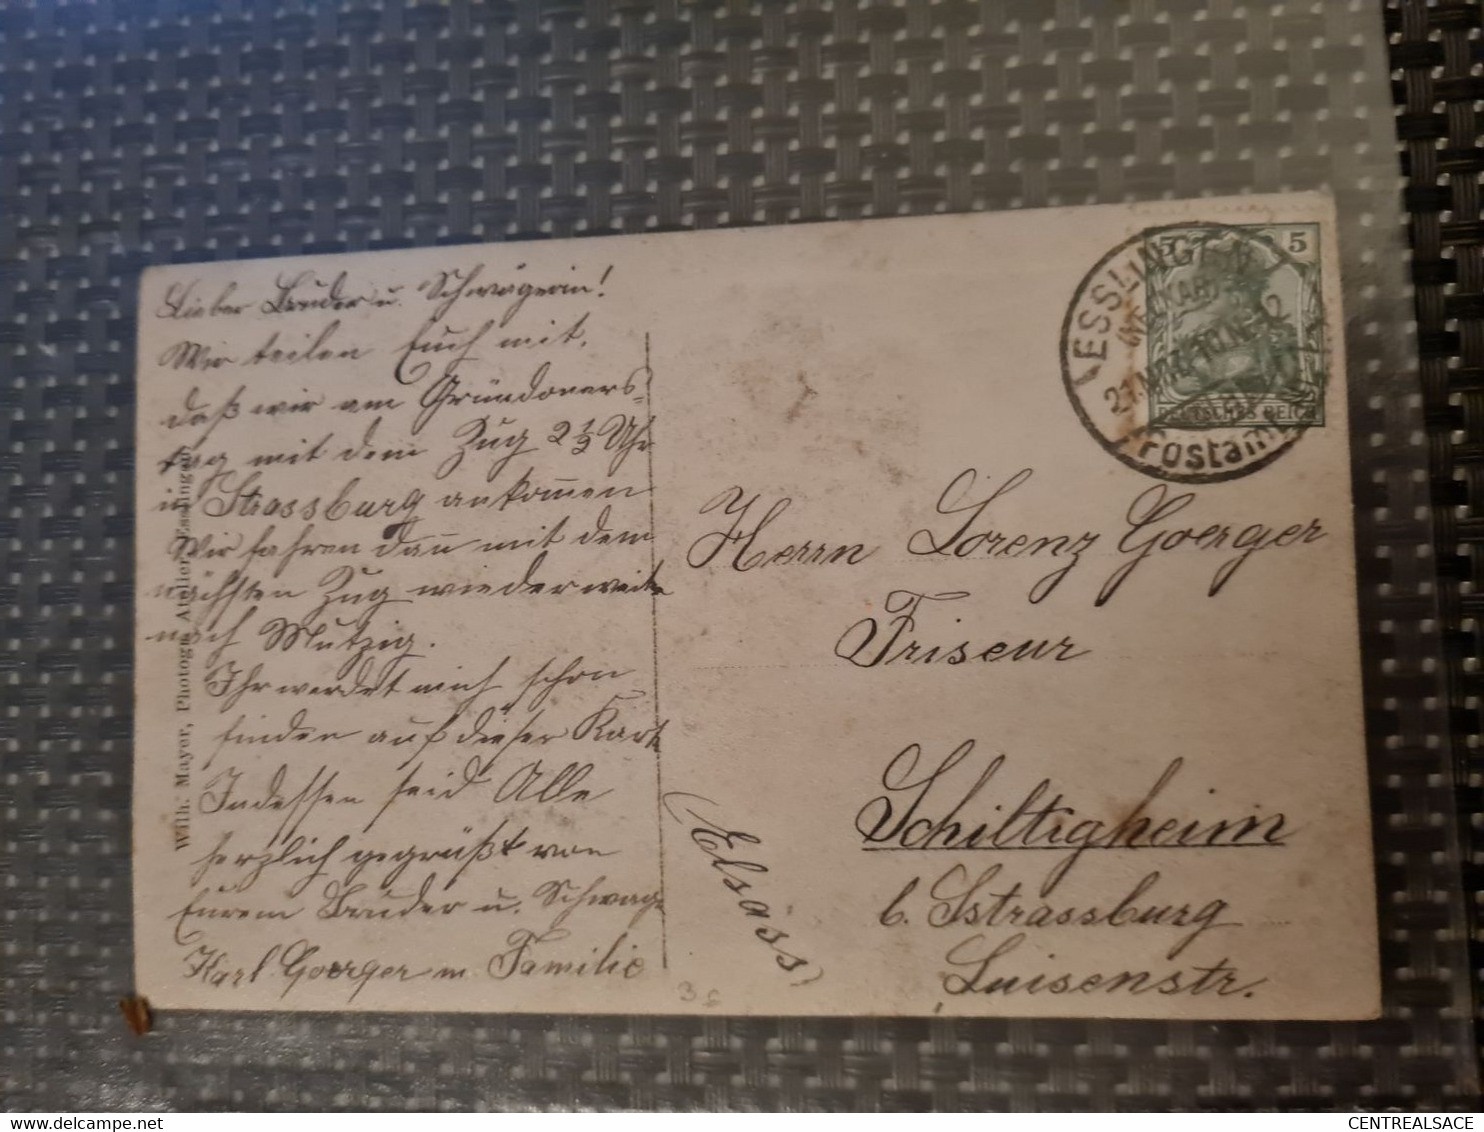 Lieber Bruder u. Schwägerin!
Wir teilen Euch mit,
daß wir am Gründoners-
tag mit dem Zug 2½ Uhr
in Strassburg ankom̄en
Wir fahren dan̄ mit dem
nächsten Zug wieder weiter
nach Mutzig.
Ihr werdet mich schon
finden auf dieser Karte
Indessen seid Alle
herzlich gegrüßt von
Eurem Bruder u. Schwager
Karl Goerger m Familie
Wilh. Mayer, Photogr. Atelier, Esslingen
ESSLINGEN
(NECKAR)
10.N 12
Postamt
5 5
DEUTSCHES REICH
Herrn Lorenz Goerger
Friseur
Schiltigheim
b. Strassburg
Luisenstr.
(Elsass)
CENTREALSACE